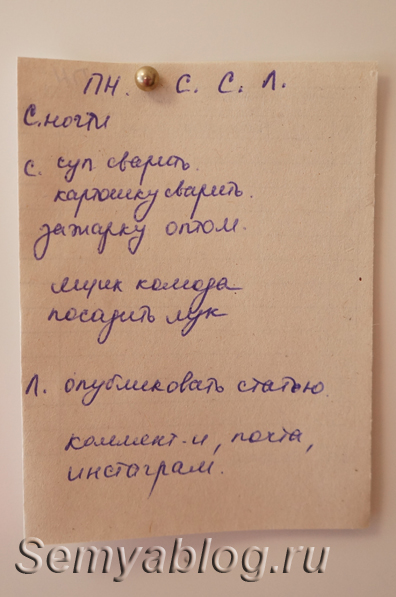 ПН. С. С. Л.
С. ногти
С. суп сварить.
картошку сварить.
зажарку оптом.
ящик комода
посадить лук
Л. опубликовать статью.
коммент-и, почта,
инстаграм.
Semyablog.ru